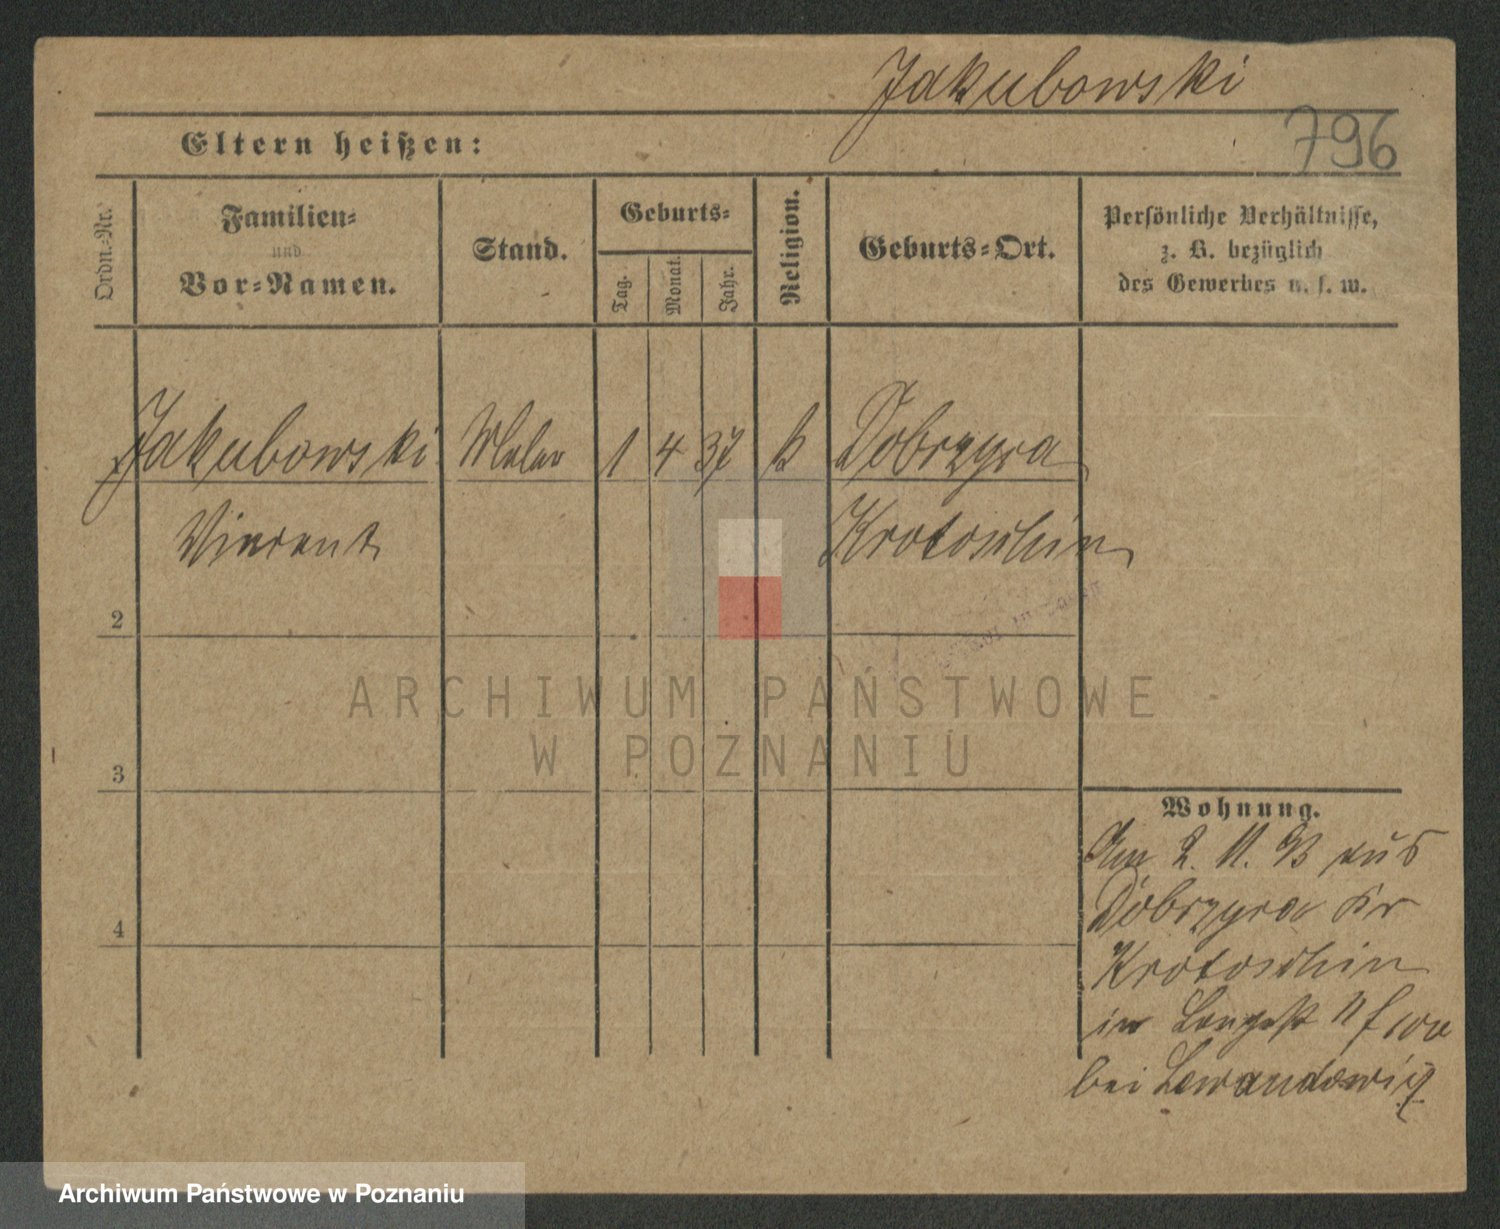 Jakubowski
796
Eltern heißen:
Ordn.-Nr.
Familien-
und
Vor-Namen.
Stand.
Geburts-
Tag.
Monat.
Jahr.
Religion.
Geburts-Ort.
Persönliche Verhältnisse,
z. B. bezüglich
des Gewerbes u. s. w.
Jakubowski Maler 1 4 37 k Dobrzyca
Vincent Krotoschin
2
3
4
ARCHIWUM PAŃSTWOWE
W POZNANIU
Wohnung.
Am 2. 11. 93 aus
Dobrzyca Kr
Krotoschin
in
bei Lewandowicz
Archiwum Państwowe w Poznaniu